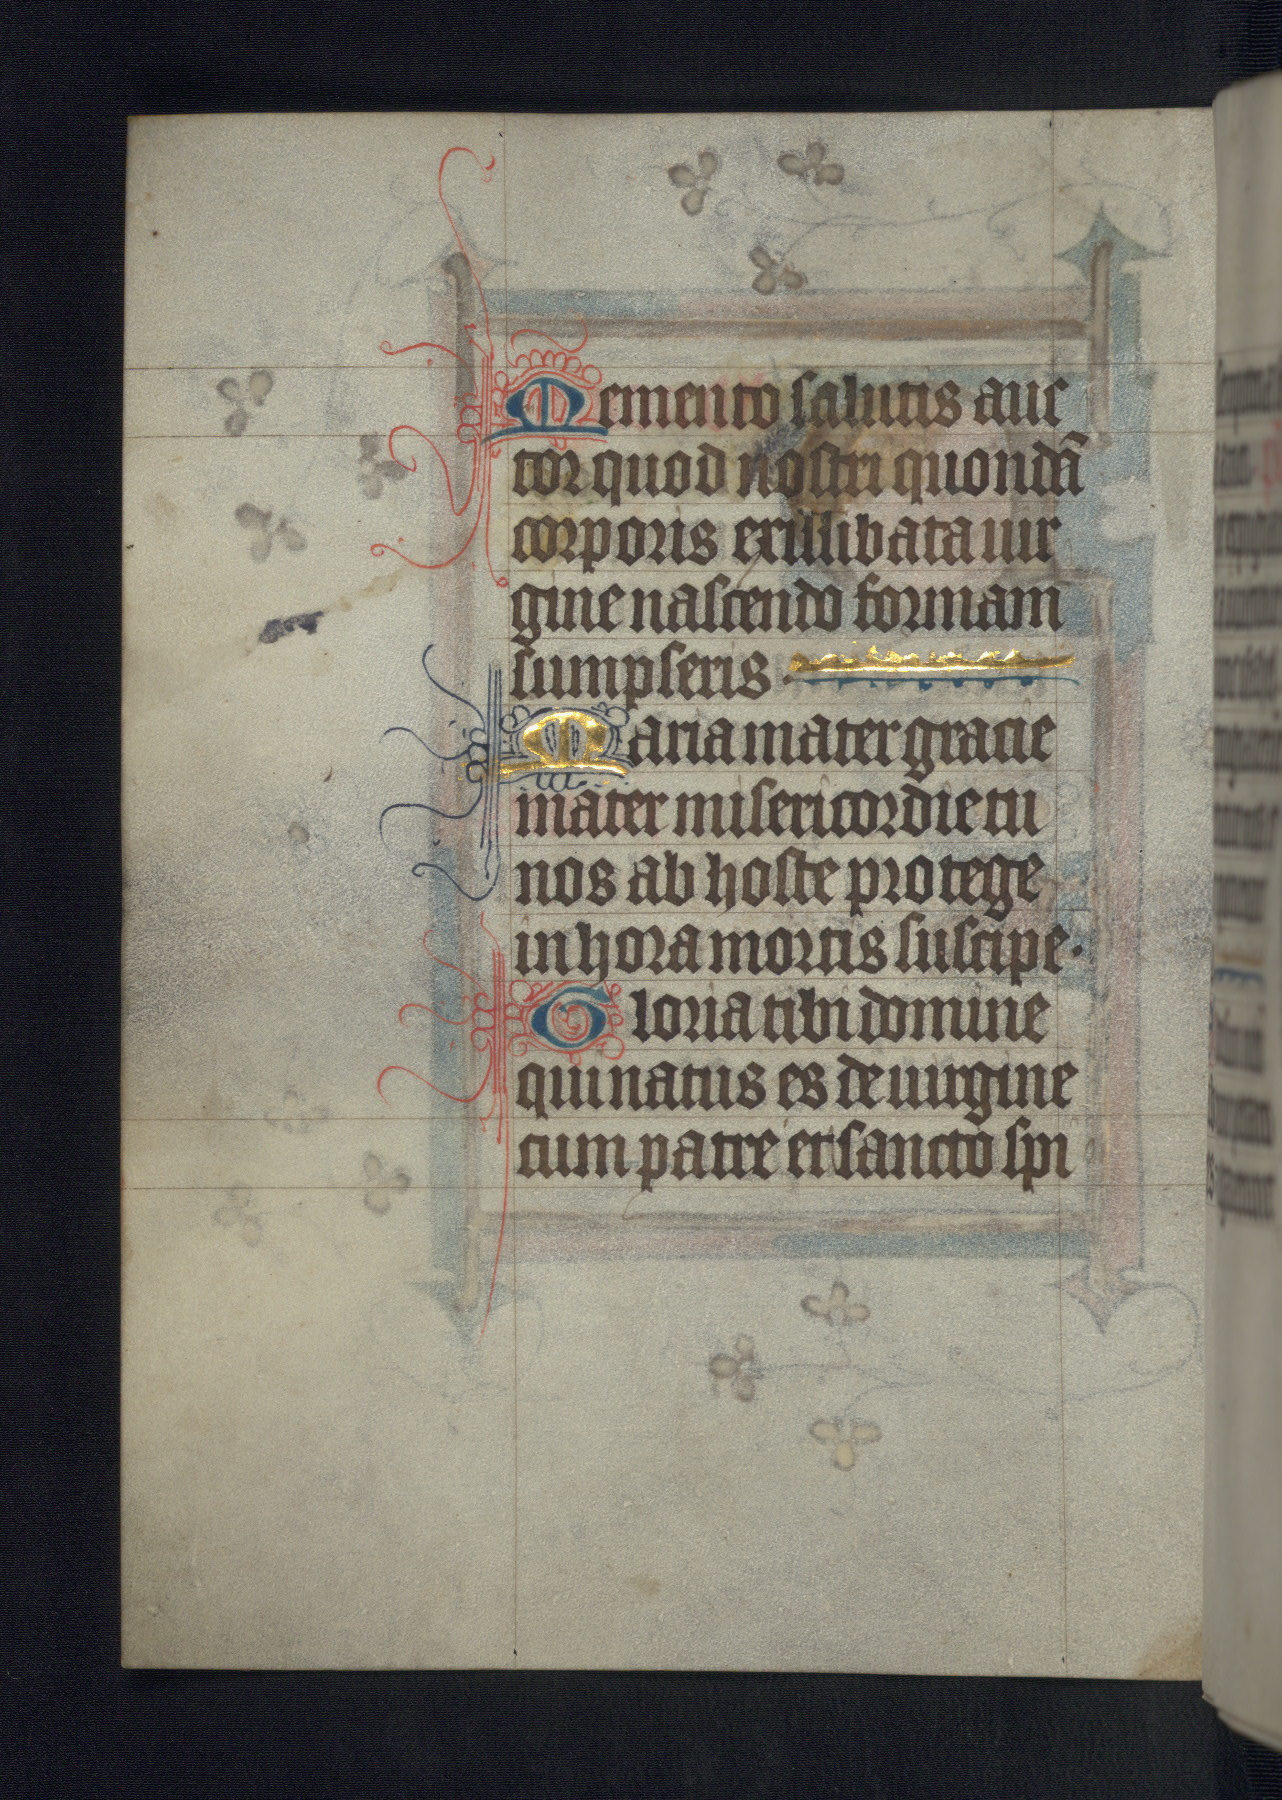 Memento salutis auc
tor quod nostri quondā
corporis exillibata uir
gine nascendo formam
sumpseris ·
Maria mater gracie
mater misericordie tu
nos ab hoste protege
in hora mortis suscipe·
Gloria tibi domine
qui natus es de uirgine
cum patre et sancto spi